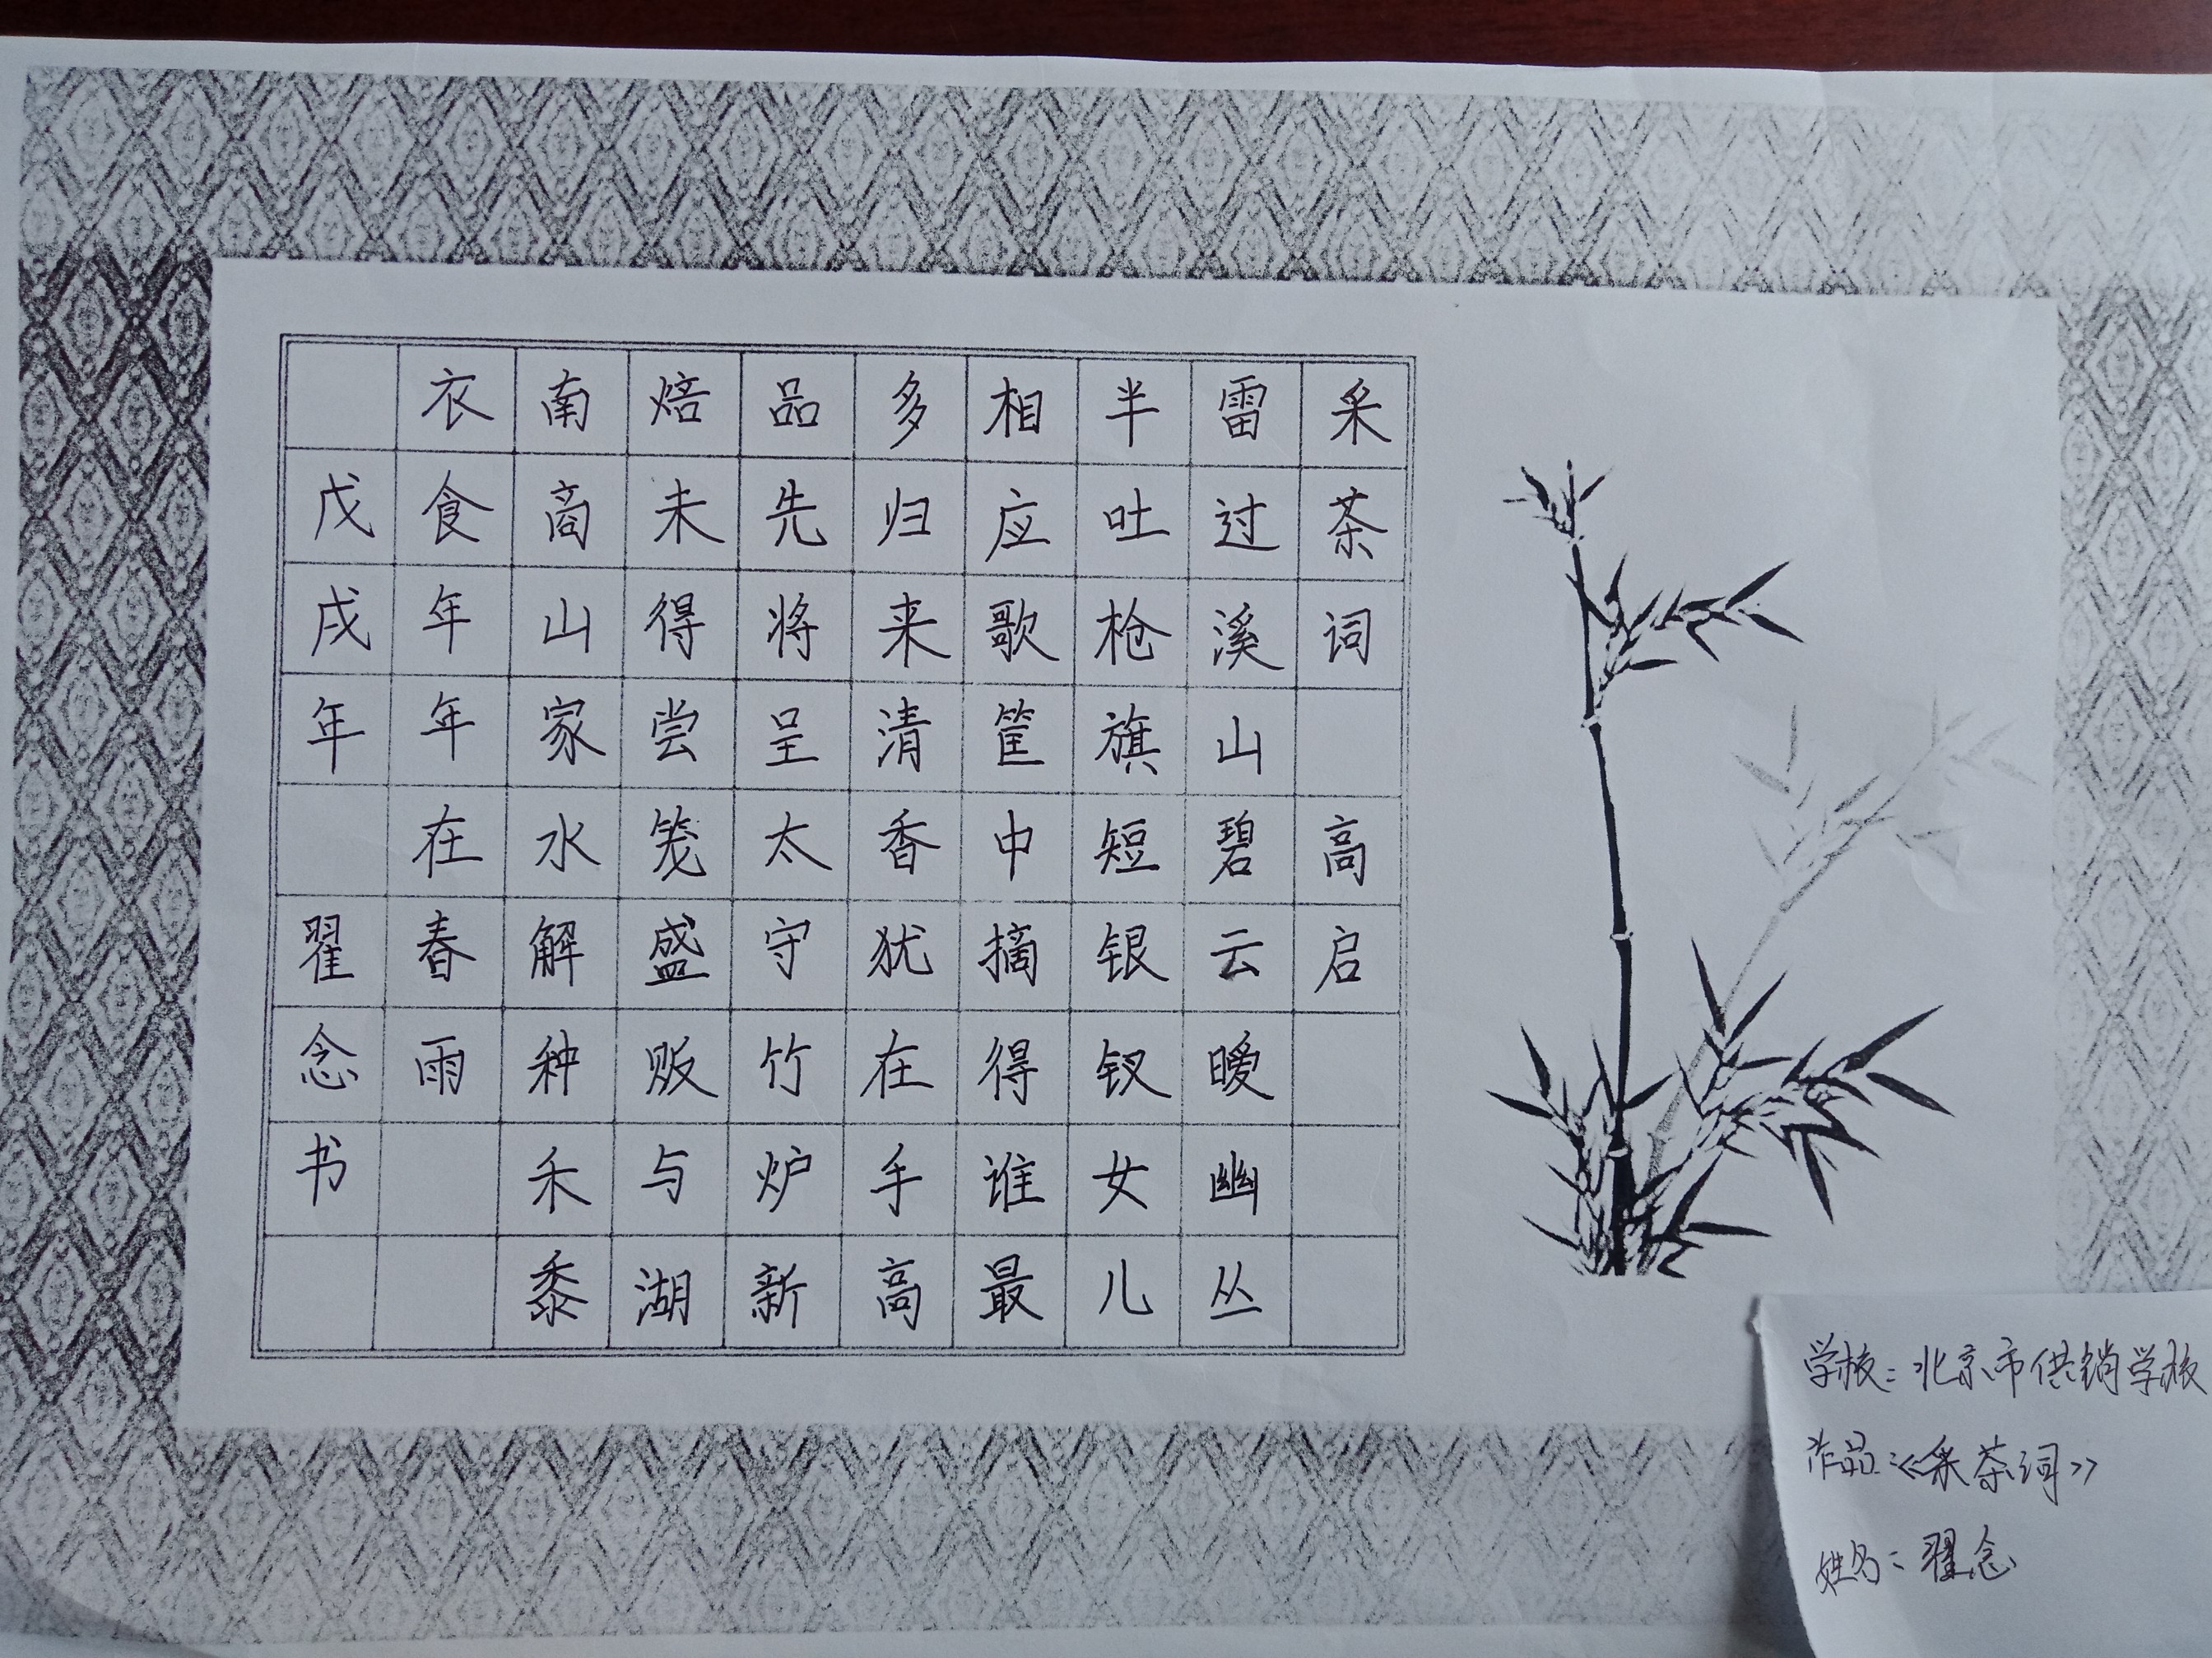 采茶词 高启
雷过溪山碧云暧幽丛
半吐枪旗短银钗女儿
相应歌筐中摘得谁最
多归来清香犹在手高
品先将呈太守竹炉新
焙未得尝笼盛贩与湖
南商山家不解种禾黍
衣食年年在春雨
戊戌年 翟念书
学校：北京市供销学校
作品：《采茶词》
姓名：翟念